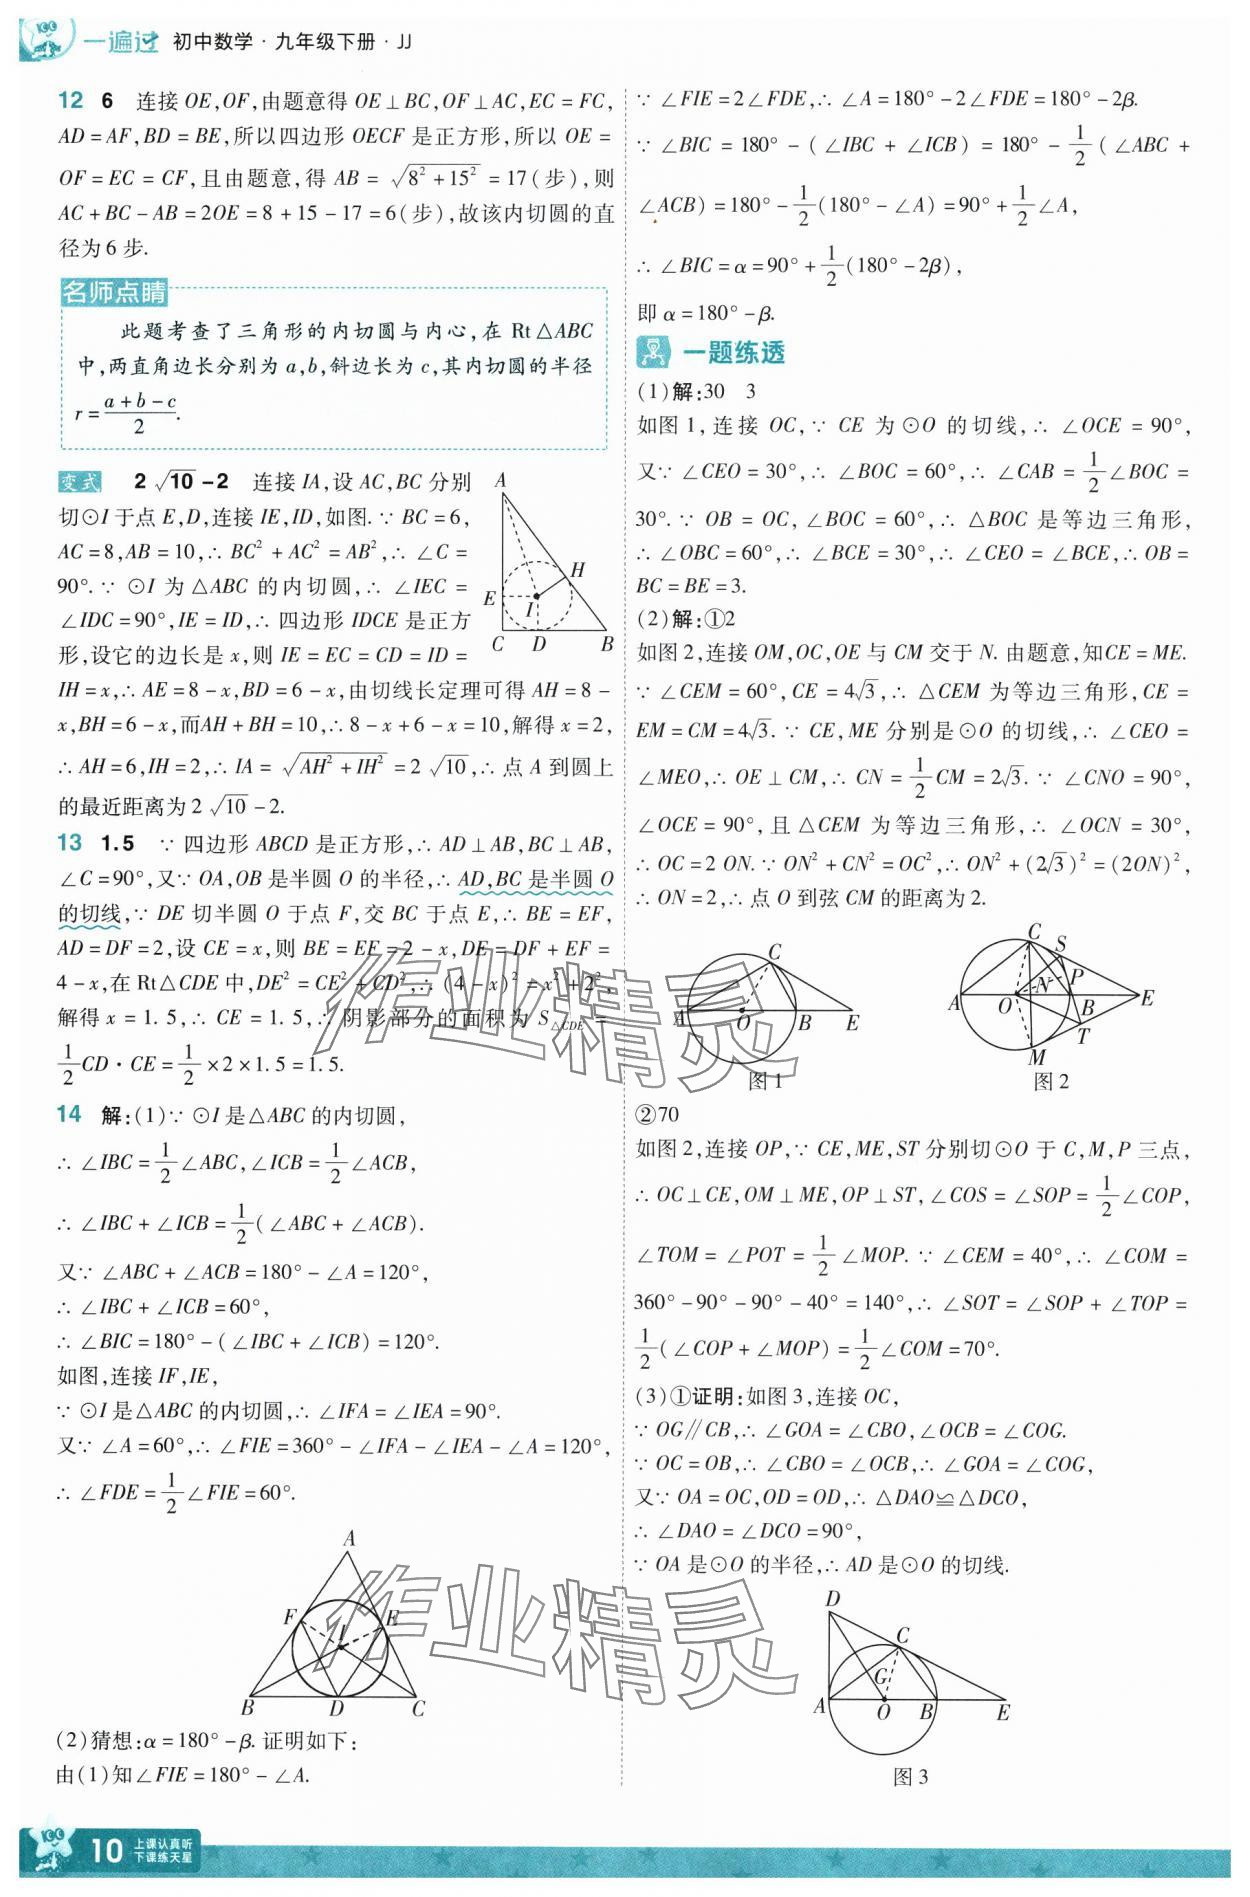 一遍过 初中数学·九年级下册·JJ
12 6 连接 OE,OF,由题意得 OE⊥BC,OF⊥AC,EC=FC,
AD=AF,BD=BE,所以四边形 OECF 是正方形,所以 OE=
OF=EC=CF,且由题意,得 AB=√(8²+15²)=17(步),则
AC+BC-AB=2OE=8+15-17=6(步),故该内切圆的直
径为6步.
名师点睛
此题考查了三角形的内切圆与内心,在 Rt△ABC
中,两直角边长分别为 a,b,斜边长为 c,其内切圆的半径
r=(a+b-c)/2.
变式 2√10-2 连接 IA,设 AC,BC 分别
切⊙I于点 E,D,连接 IE,ID,如图.∵BC=6,
AC=8,AB=10,∴BC²+AC²=AB²,∴∠C=
90°.∵⊙I 为△ABC 的内切圆,∴∠IEC=
∠IDC=90°,IE=ID,∴四边形 IDCE 是正方
形,设它的边长是 x,则 IE=EC=CD=ID=
IH=x,∴AE=8-x,BD=6-x,由切线长定理可得 AH=8-
x,BH=6-x,而AH+BH=10,∴8-x+6-x=10,解得 x=2,
∴AH=6,IH=2,∴IA=√(AH²+IH²)=2√10,∴点 A 到圆上
的最近距离为 2√10-2.
A
H
E
I
C D B
13 1.5 ∵四边形 ABCD 是正方形,∴AD⊥AB,BC⊥AB,
∠C=90°,又∵OA,OB 是半圆 O 的半径,∴AD,BC 是半圆 O
的切线,∵DE 切半圆 O 于点 F,交 BC 于点 E,∴BE=EF,
AD=DF=2,设 CE=x,则 BE=EF=2-x,DE=DF+EF=
4-x,在 Rt△CDE 中,DE²=CE²+CD²,∴(4-x)²=x²+2²,
解得 x=1.5,∴CE=1.5,∴阴影部分的面积为 S△CDE=
1/2 CD·CE=1/2×2×1.5=1.5.
14 解:(1)∵⊙I是△ABC 的内切圆,
∴∠IBC=1/2∠ABC,∠ICB=1/2∠ACB,
∴∠IBC+∠ICB=1/2(∠ABC+∠ACB).
又∵∠ABC+∠ACB=180°-∠A=120°,
∴∠IBC+∠ICB=60°,
∴∠BIC=180°-(∠IBC+∠ICB)=120°.
如图,连接 IF,IE,
∵⊙I是△ABC 的内切圆,∴∠IFA=∠IEA=90°.
又∵∠A=60°,∴∠FIE=360°-∠IFA-∠IEA-∠A=120°,
∴∠FDE=1/2∠FIE=60°.
A
F E
I
B D C
(2)猜想:α=180°-β.证明如下:
由(1)知∠FIE=180°-∠A.
∵∠FIE=2∠FDE,∴∠A=180°-2∠FDE=180°-2β.
∵∠BIC=180°-(∠IBC+∠ICB)=180°-1/2(∠ABC+
∠ACB)=180°-1/2(180°-∠A)=90°+1/2∠A,
∴∠BIC=α=90°+1/2(180°-2β),
即 α=180°-β.
一题练透
(1)解:30 3
如图1,连接 OC,∵CE 为⊙O 的切线,∴∠OCE=90°,
又∵∠CEO=30°,∴∠BOC=60°,∴∠CAB=1/2∠BOC=
30°.∵OB=OC,∠BOC=60°,∴△BOC 是等边三角形,
∴∠OBC=60°,∴∠BCE=30°,∴∠CEO=∠BCE,∴OB=
BC=BE=3.
(2)解:①2
如图2,连接 OM,OC,OE 与 CM 交于 N.由题意,知CE=ME.
∵∠CEM=60°,CE=4√3,∴△CEM 为等边三角形,CE=
EM=CM=4√3.∵CE,ME 分别是⊙O 的切线,∴∠CEO=
∠MEO,∴OE⊥CM,∴CN=1/2 CM=2√3.∵∠CNO=90°,
∠OCE=90°,且△CEM 为等边三角形,∴∠OCN=30°,
∴OC=2ON.∵ON²+CN²=OC²,∴ON²+(2√3)²=(2ON)²,
∴ON=2,∴点 O 到弦 CM 的距离为2.
C
A O B E
图1
C S
N P
A O B E
T
M
图2
②70
如图2,连接 OP,∵CE,ME,ST 分别切⊙O 于 C,M,P 三点,
∴OC⊥CE,OM⊥ME,OP⊥ST,∠COS=∠SOP=1/2∠COP,
∠TOM=∠POT=1/2∠MOP.∵∠CEM=40°,∴∠COM=
360°-90°-90°-40°=140°,∴∠SOT=∠SOP+∠TOP=
1/2(∠COP+∠MOP)=1/2∠COM=70°.
(3)①证明:如图3,连接 OC,
∵OG∥CB,∴∠GOA=∠CBO,∠OCB=∠COG.
∵OC=OB,∴∠CBO=∠OCB,∴∠GOA=∠COG,
又∵OA=OC,OD=OD,∴△DAO≌△DCO,
∴∠DAO=∠DCO=90°,
∵OA是⊙O 的半径,∴AD是⊙O 的切线.
D
C
G
A O B E
图3
作业精灵
作业精灵
10 上课认真听
下课练天星